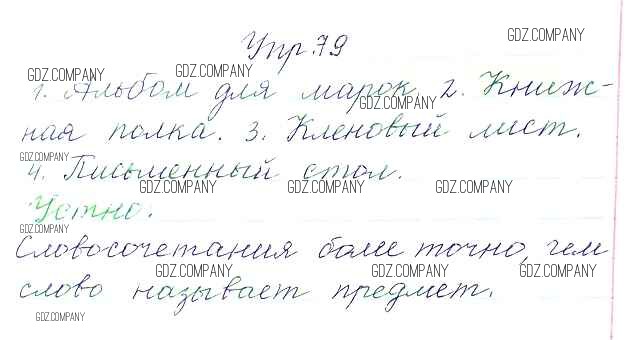 GDZ.COMPANY
Упр.79
GDZ.COMPANY GDZ.COMPANY
1. Альбом для марок. 2. Книж-
GDZ.COMPANY
ная полка. 3. Кленовый лист.
GDZ.COMPANY
4. Письменный стол.
GDZ.COMPANY GDZ.COMPANY GDZ.COMPANY
Устно.
GDZ.COMPANY
Словосочетания более точно, чем
GDZ.COMPANY GDZ.COMPANY GDZ.COMPANY
слово называет предмет.
GDZ.COMPANY